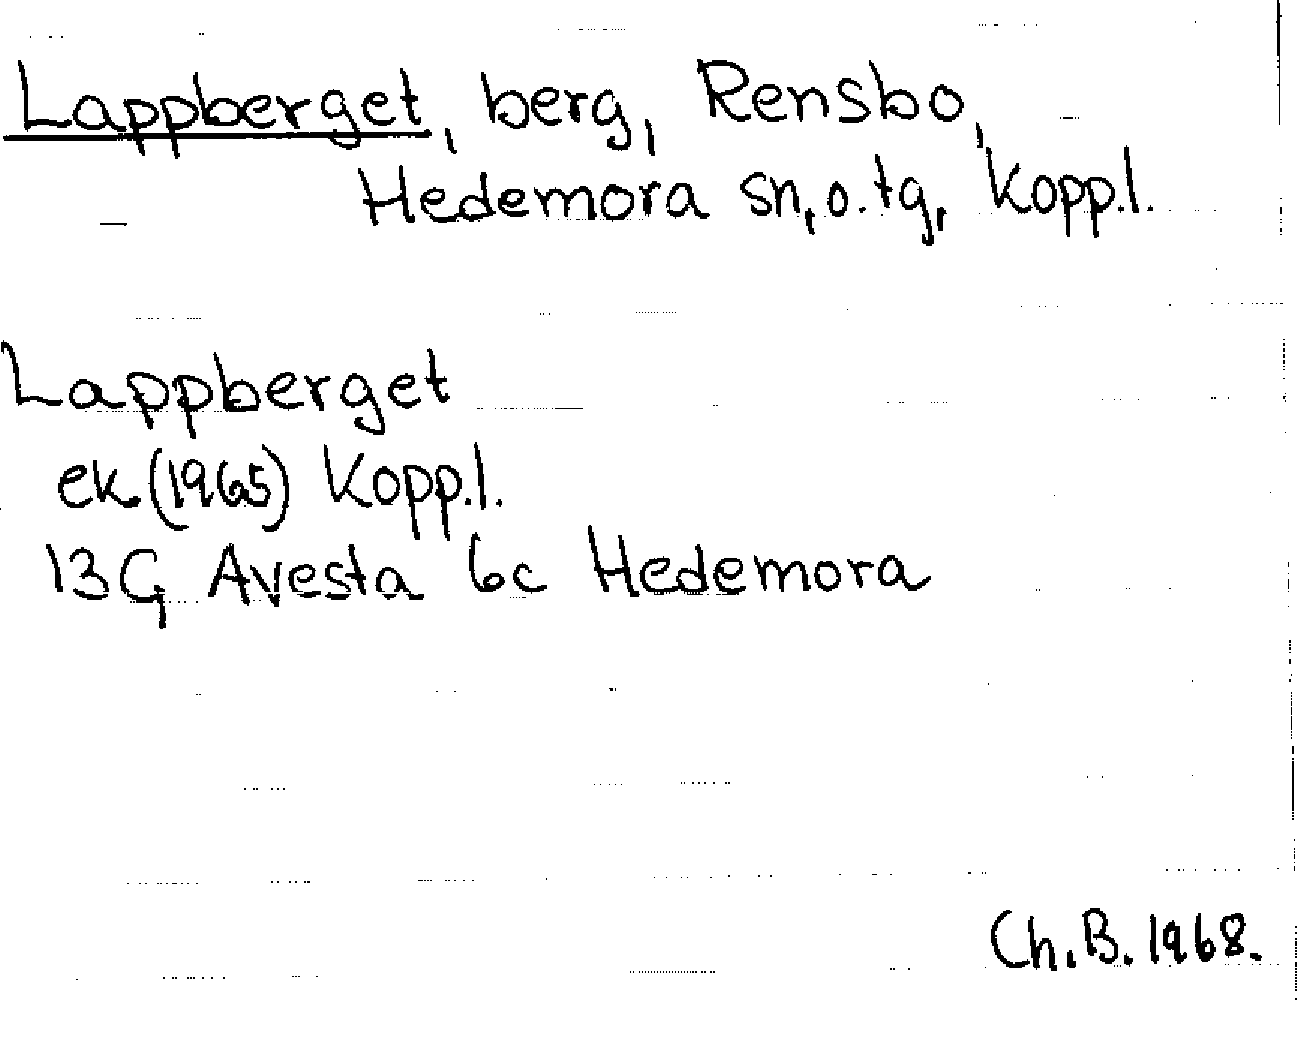 Lappberget, berg, Rensbo,
Hedemora sn, o. tg, Kopp.l.
Lappberget
ek (1965) Kopp.l.
13G Avesta 6c Hedemora
Ch. B. 1968.